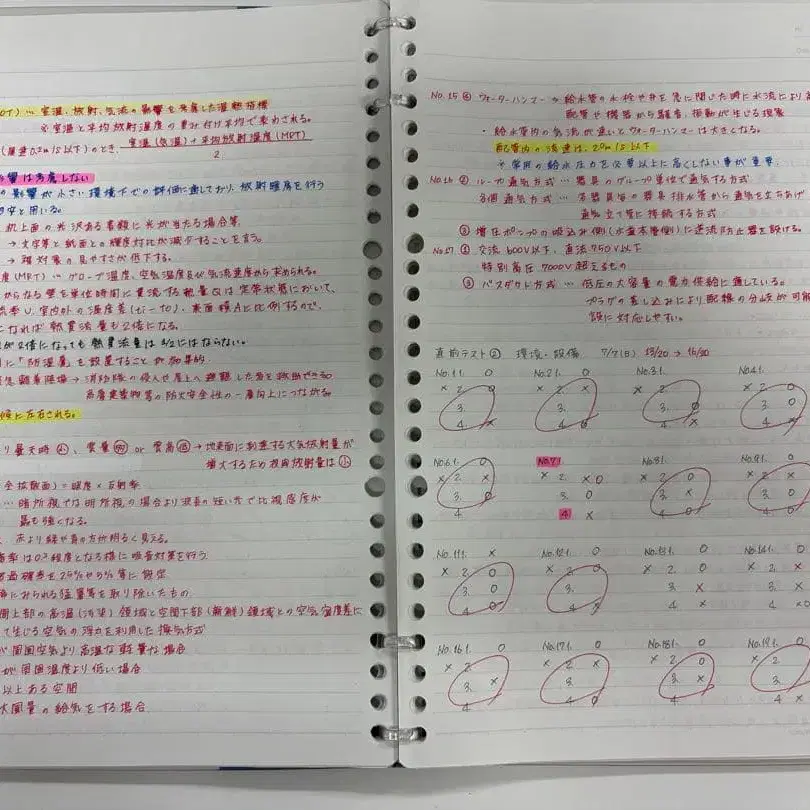 OT) … 室温、放射、気流の影響を考慮した温熱指標
※ 室温と平均放射温度の重み付け平均で表わされる。
(風速0.2m/s以下)のとき、 室温(気温)+平均放射温度(MRT)
2
影響は考慮しない
の影響が小さい環境下での評価に適しており、放射暖房を行う
用いる。
机上面の光沢ある書類に光が当たる場合等、
→ 文字等と紙面との輝度対比が減少することを言う。
→ 視対象の見やすさが低下する。
度(MRT) … グローブ温度、空気温度及び気流速度から求められる。
からなる壁を単位時間に貫流する熱量Qは定常状態において、
流率U、室内外の温度差(ti-to)、表面積Aに比例するので、
になれば熱貫流量も2倍になる。
が2倍になっても熱貫流量は1/2にはならない。
側に「防湿層」を設置することが効果的
→ 消防隊の侵入や屋上へ避難した者を救出できる
高層建築物等の防火安全性の一層向上につながる。
候に左右される。
曇天時 小、雲量 多 or 雲高 低 → 地表面に到達する大気放射量が
増大するため夜間放射量は 小
全拡散面) = 照度×反射率
… 暗所視では明所視の場合より波長の短い光で比視感度が
最も強くなる。
赤より緑や青の方が明るく見える。
音率は0.3程度となる様に吸音対策を行う
超過確率を2.5%や5%等に設定
にみられる猛暑等を取り除いたもの
間上部の高温(汚染)領域と空間下部(新鮮)領域との空気密度差に
て生じる空気の浮力を利用した換気方式
が周囲空気より高温な軽量な場合
が周囲温度より低い場合
以上ある空間
大風量の給気をする場合
No.15 ④ ウォーターハンマー → 給水管の水栓や弁を急に閉じた時に水流により
配管や機器から騒音、振動が生じる現象
・給水管内の気流が速いとウォーターハンマーは大きくなる。
配管内の流速は、2.0m/s以下
※ 常用の給水圧力を必要以上に高くしない事が重要
No.16 ② ループ通気方式 … 器具のグループ単位で通気する方式
各個通気方式 … 各器具毎の器具排水管から通気を立ちあげ
通気立て管に接続する方式
③ 増圧ポンプの吸込み側(水道本管側)に逆流防止器を設ける。
No.17 ④ 交流 600V以下、直流 750V以下
特別高圧 7000V 超えるもの
③ バスダクト方式 … 低圧の大容量の電力供給に適している。
プラグの差し込みにより配線の分岐が可能
設に対応しやすい。
直前テスト② 環境・設備 7/7(日) 15/20 → 16/20
No.1 1. 0 No.2 1. 0 No.3 1. No.4 1. 0
× 2. 0 × 2. × × 2. × 2. 0
3. 3. 3. 0 3. 0
4. 0 4. 0 4. × 4. ×
No.6 1. 0 No.7 1. No.8 1. 0 No.9 1. 0
× 2. × × 2. ×0 × 2. × × 2. ×
3. 0 3. 0 3. 0 3. 0
4. 4 × 4. 4. 0
No.11 1. × No.12 1. 0 No.13 1. 0 No.14 1. 0
× 2. 0 × 2. 0 × 2. 0 × 2. ×
3. 0 3. 3. × 3. ×
4. 0 4. × 4. × 4. ×
No.16 1. 0 No.17 1. 0 No.18 1. 0 No.19 1. 0
× 2. × 2. × × 2. 0 × 2.
3. × 3. 3. × 3.
4. 0 4. 0 4. 0 4. ×